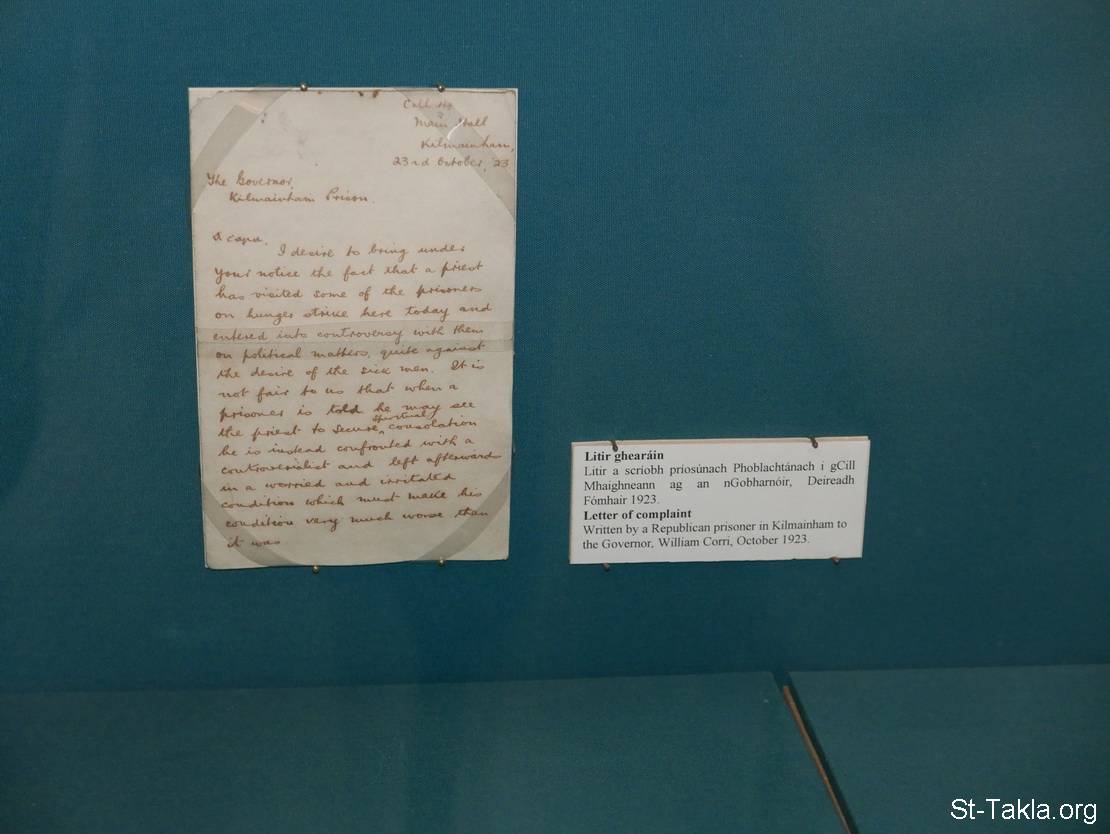 Main Hall
Kilmainham,
23rd October, '23
The Governor,
Kilmainham Prison.
A cara,
I desire to bring under
your notice the fact that a priest
has visited some of the prisoners
on hunger strike here today and
entered into controversy with them
on political matters, quite against
the desire of the sick men. It is
not fair to us that when a
prisoner is told he may see
the priest to secure spiritual consolation
he is instead confronted with a
controversialist and left afterwards
in a worried and irritated
condition which must make his
condition very much worse than
it was
Litir ghearáin
Litir a scríobh príosúnach Phoblachtánach i gCill
Mhaighneann ag an nGobharnóir, Deireadh
Fómhair 1923.
Letter of complaint
Written by a Republican prisoner in Kilmainham to
the Governor, William Corri, October 1923.
St-Takla.org